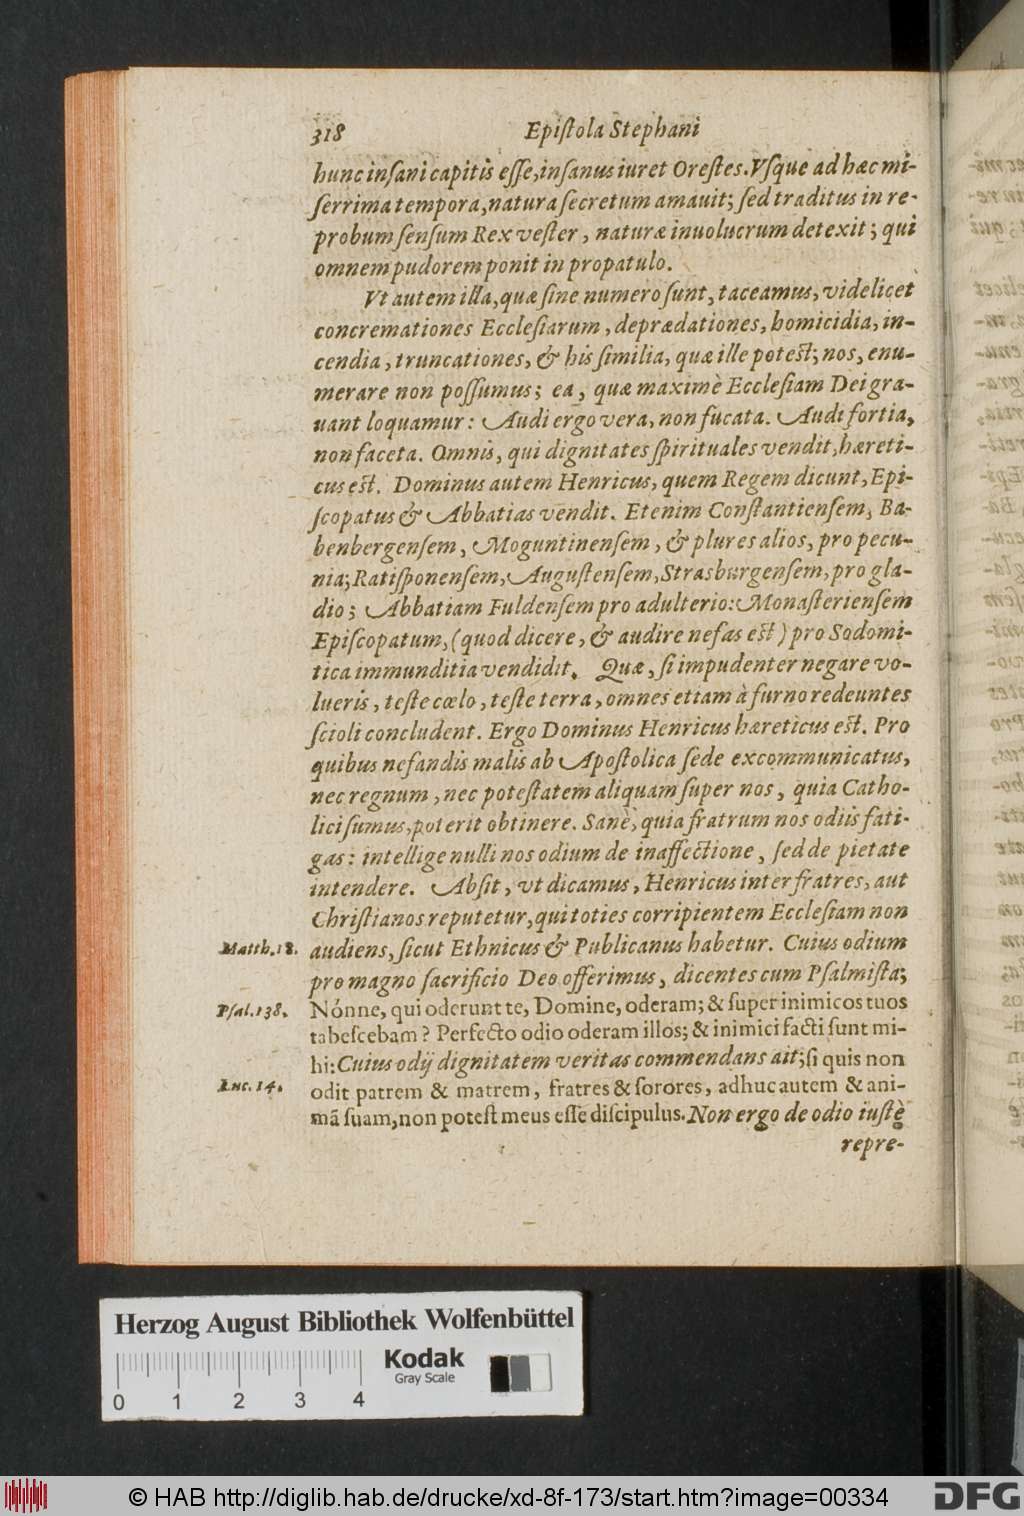 318 Epiſtola Stephani
hunc inſani capitis eſſe, inſanus iuret Oreſtes. Vſque ad hæc mi-
ſerrima tempora, natura ſecretum amauit; ſed traditus in re-
probum ſenſum Rex veſter, naturæ inuolucrum detexit; qui
omnem pudorem ponit in propatulo.
Vt autem illa, quæ ſine numero ſunt, taceamus, videlicet
concremationes Eccleſiarum, deprædationes, homicidia, in-
cendia, truncationes, & his ſimilia, quæ ille poteſt; nos, enu-
merare non poſſumus; ea, quæ maximè Eccleſiam Dei gra-
uant loquamur: Audi ergo vera, non fucata. Audi fortia,
non faceta. Omnis, qui dignitates ſpirituales vendit, hæreti-
cus eſt. Dominus autem Henricus, quem Regem dicunt, Epi-
ſcopatus & Abbatias vendit. Etenim Conſtantienſem, Ba-
benbergenſem, Moguntinenſem, & plures alios, pro pecu-
nia; Ratiſponenſem, Auguſtenſem, Strasburgenſem, pro gla-
dio; Abbatiam Fuldenſem pro adulterio: Monaſterienſem
Epiſcopatum, (quod dicere, & audire nefas eſt) pro Sodomi-
tica immunditia vendidit. Quæ, ſi impudenter negare vo-
lueris, teſte cœlo, teſte terra, omnes etiam à furno redeuntes
ſcioli concludent. Ergo Dominus Henricus hæreticus eſt. Pro
quibus nefandis malis ab Apoſtolica ſede excommunicatus,
nec regnum, nec poteſtatem aliquam ſuper nos, quia Catho-
lici ſumus, poterit obtinere. Sanè, quia fratrum nos odiis fati-
gas: intellige nulli nos odium de inaffectione, ſed de pietate
intendere. Abſit, vt dicamus, Henricus inter fratres, aut
Chriſtianos reputetur, qui toties corripientem Eccleſiam non
Matth. 18. audiens, ſicut Ethnicus & Publicanus habetur. Cuius odium
pro magno ſacrificio Deo offerimus, dicentes cum Pſalmiſta;
Pſal. 138. Nónne, qui oderunt te, Domine, oderam; & ſuper inimicos tuos
tabeſcebam? Perfecto odio oderam illos; & inimici facti ſunt mi-
hi: Cuius odij dignitatem veritas commendans ait; ſi quis non
Luc. 14. odit patrem & matrem, fratres & ſorores, adhuc autem & ani-
mã ſuam, non poteſt meus eſſe diſcipulus. Non ergo de odio iuſtè
repre-
Herzog August Bibliothek Wolfenbüttel
Kodak
Gray Scale
0 1 2 3 4
© HAB http://diglib.hab.de/drucke/xd-8f-173/start.htm?image=00334
DFG